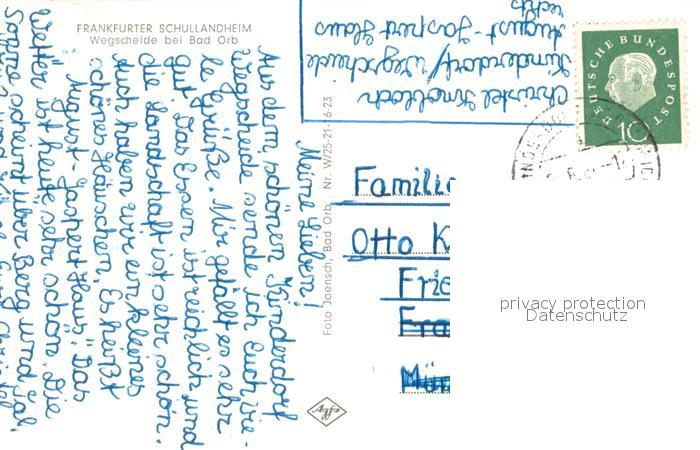 FRANKFURTER SCHULLANDHEIM
Wegscheide bei Bad Orb
Meine Lieben!
Aus dem, schönen Kinderdorf
Wegscheide sende ich Euch vie-
le Grüße. Mir gefällt es sehr
gut. Das Essen ist reichlich und
die Landschaft ist sehr schön.
Auch haben wir ein kleines
schönes Häuschen. Es heißt
"August-Jaspert Haus". Das
Wetter ist heute sehr schön. Die
Sonne scheint über Berg und Tal.
Foto Jaensch, Bad Orb Nr. W/25-21-16-23
Agfa
Christel
Kinderdorf/Wegscheide
August-Jaspert Haus
rechts
DEUTSCHE BUNDESPOST
10
Famili
Otto K
Frie
Fra
Mün
privacy protection
Datenschutz